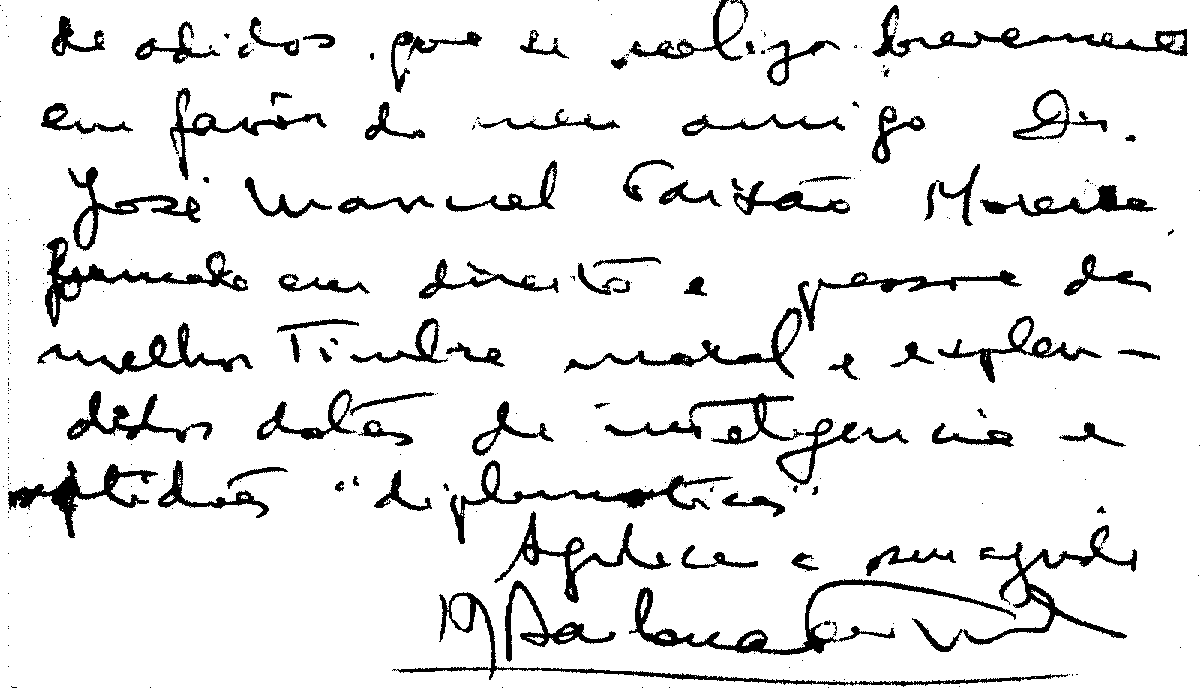 de adidos que se realiza brevemente
em favôr do meu amigo Dr.
José Manuel Paixão Moreira
formado em direito e pessoa da
melhor timbre moral e explen-
didos dotes de inteligencia e
aptidões "diplomaticas"
Agradece a sua ajuda